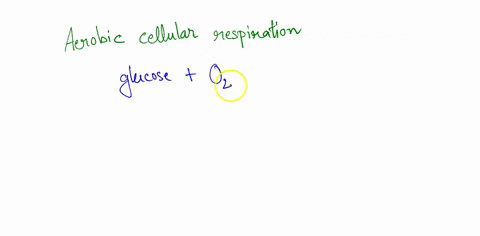 Aerobic cellular respiration
glucose + O₂